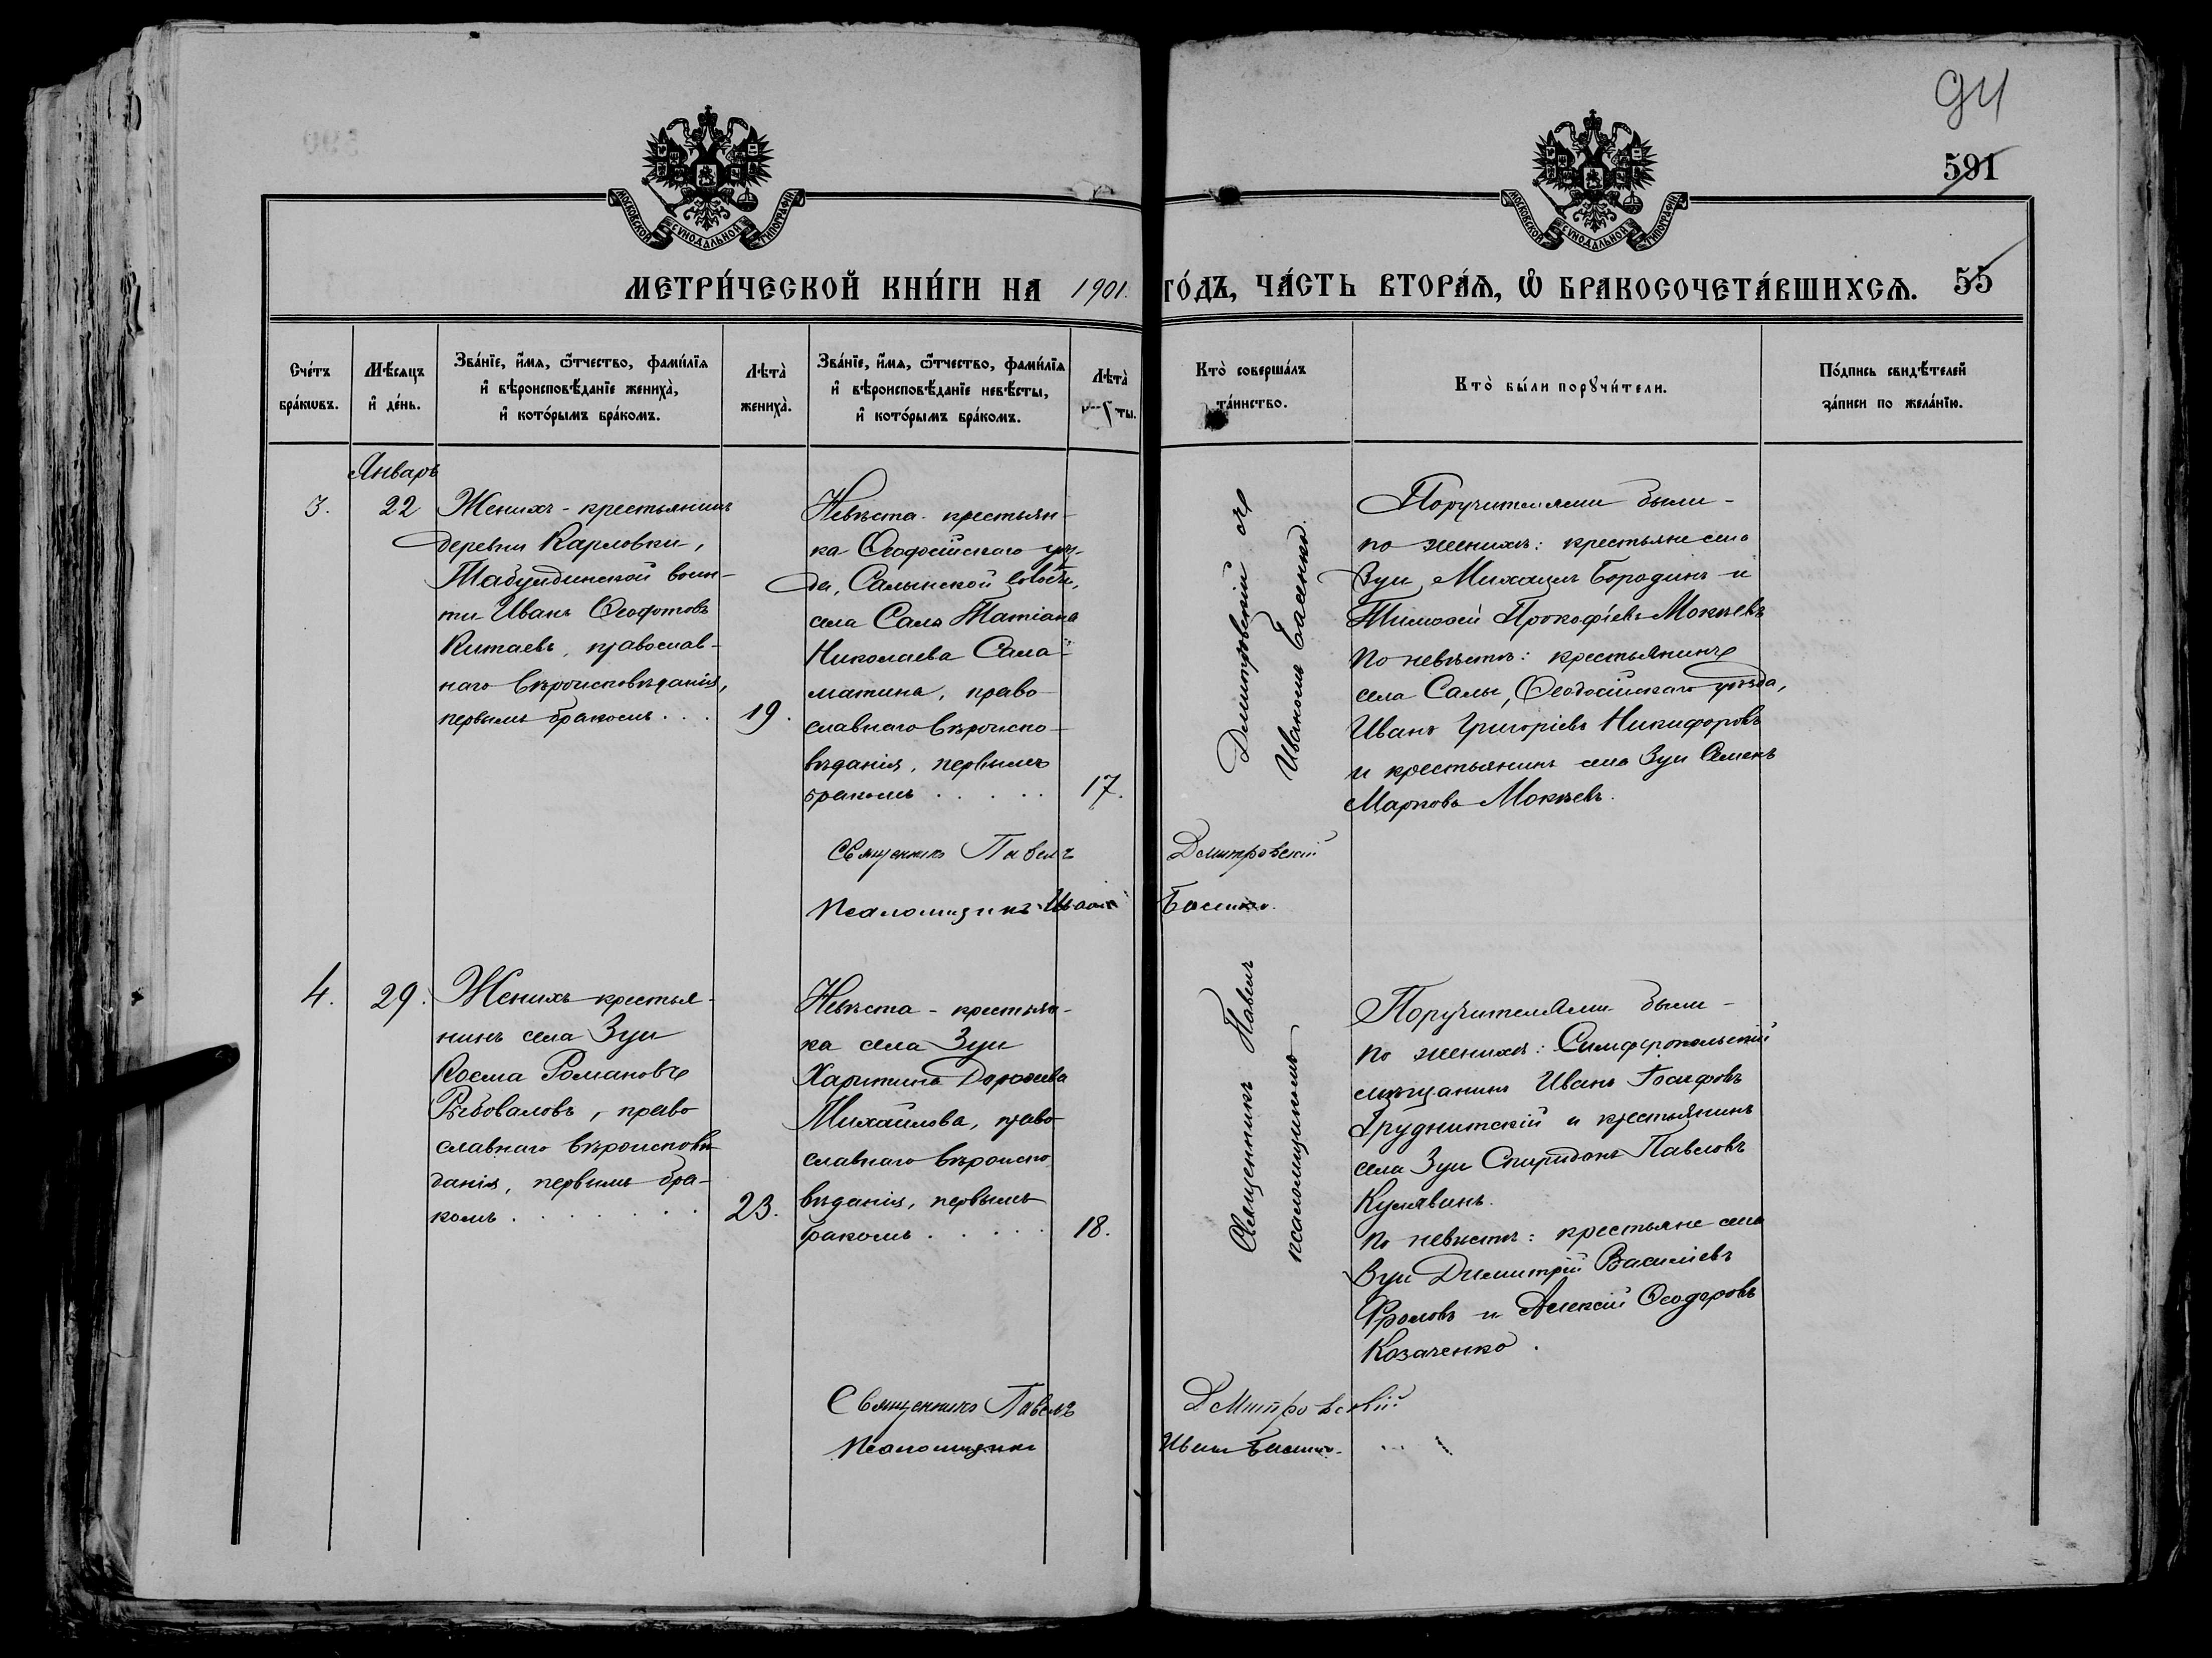 94
591
МОСКОВСКОЙ СѴНОДАЛЬНОЙ ТИПОГРАФІИ
МОСКОВСКОЙ СѴНОДАЛЬНОЙ ТИПОГРАФІИ
МЕТРИ́ЧЕСКОЙ КНИ́ГИ НА 1901. ГО́ДЪ, ЧА́СТЬ ВТОРА́Ѧ, Ѡ҆ БРАКОСОЧЕТА́ВШИХСѦ. 55
Сче́тъ
бра́кѡвъ.
Мѣ́сѧцъ
и҆ де́нь.
Зва́нїе, и҆́мѧ, ѻ҆́тчество, фами́лїѧ
и҆ вѣроисповѣ́данїе жениха̀,
и҆ кото́рымъ бра́комъ.
Лѣта̀
жениха̀.
Зва́нїе, и҆́мѧ, ѻ҆́тчество, фами́лїѧ
и҆ вѣроисповѣ́данїе невѣ́сты,
и҆ кото́рымъ бра́комъ.
Лѣта̀
ты.
Кто̀ соверша́лъ
та́инство.
Кто̀ бы́ли порꙋчи́тели.
По́дпись свидѣ́телей
за́писи по жела́нїю.
Январь
3.
22
Женихъ - крестьянинъ
деревни Карловки,
Табулдинской волос-
ти Иванъ
Китаевъ, православ-
наго вѣроисповѣданія,
первымъ бракомъ . . .
19.
Невѣста - крестьян-
ка Ѳеодосійскаго уѣз-
да, Салынской волости,
села Салы Татіана
Николаева Сала-
матина, право-
славнаго вѣроиспо-
вѣданія, первымъ
бракомъ . . . . .
17.
Димитровскій съ
Иваномъ Басенко.
Поручителями были -
по женихѣ: крестьяне села
Зуи Михаилъ Бородинъ и
Тимоѳей Прокофіевъ Мокѣевъ
По невѣстѣ: крестьянинъ
села Салы, Ѳеодосійскаго уѣзда,
Иванъ Григоріевъ Никифоровъ
и крестьянинъ села Зуи Семенъ
Марковъ Мокѣевъ.
Священникъ Павелъ Димитровскій
Псаломщикъ Иванъ Басенко.
4.
29.
Женихъ крестья-
нинъ села Зуи
Косма Романовъ
Рыбоваловъ, право
славнаго вѣроисповѣ
данія, первымъ бра-
комъ . . . . . . .
23.
Невѣста - крестьян-
ка села Зуи
Харитина Дороѳеева
Михайлова, право
славнаго вѣроиспо
вѣданія, первымъ
бракомъ . . . . .
18.
Священникъ Павелъ
псаломщикомъ
Поручителями были -
по женихѣ: Симферопольскій
мѣщанинъ Иванъ Іосифовъ
Грудницкій и крестьянинъ
села Зуи Спиридонъ Павловъ
Кулявинъ.
По невѣстѣ: крестьяне села
Зуи Димитрій Василіевъ
Фроловъ и Алексій Ѳеодоровъ
Козаченко.
Священникъ Павелъ Димитровскій
Псаломщикъ Иванъ Басенко.